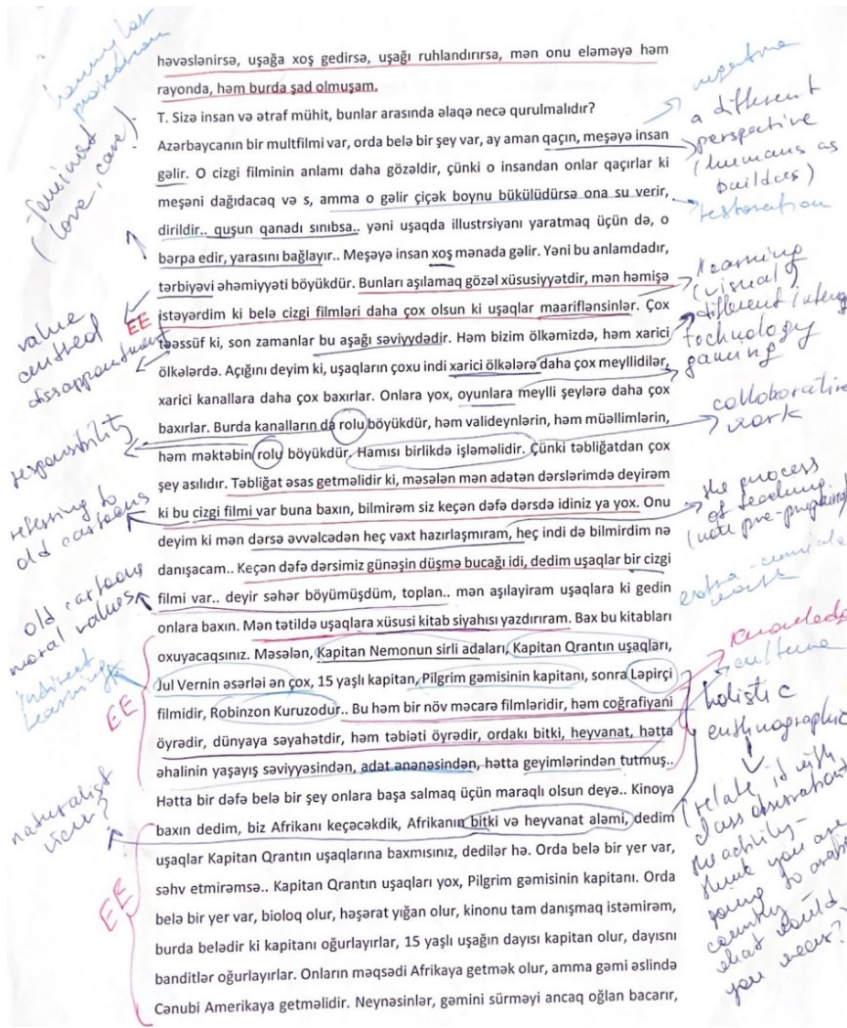 həvəslənirsə, uşağa xoş gedirsə, uşağı ruhlandırırsa, mən onu eləməyə həm
rayonda, həm burda şad olmuşam.
T. Sizə insan və ətraf mühit, bunlar arasında əlaqə necə qurulmalıdır?
Azərbaycanın bir multfilmi var, orda belə bir şey var, ay aman qaçın, meşəyə insan
gəlir. O cizgi filminin anlamı daha gözəldir, çünki o insandan onlar qaçırlar ki
meşəni dağıdacaq və s, amma o gəlir çiçək boynu bükülüdürsə ona su verir,
dirildir.. quşun qanadı sınıbsa.. yəni uşaqda illustrsiyanı yaratmaq üçün də, o
bərpa edir, yarasını bağlayır.. Meşəyə insan xoş mənada gəlir. Yəni bu anlamdadır,
tərbiyəvi əhəmiyyəti böyükdür. Bunları aşılamaq gözəl xüsusiyyətdir, mən həmişə
istəyərdim ki belə cizgi filmləri daha çox olsun ki uşaqlar maariflənsinlər. Çox
təəssüf ki, son zamanlar bu aşağı səviyydədir. Həm bizim ölkəmizdə, həm xarici
ölkələrdə. Açığını deyim ki, uşaqların çoxu indi xarici ölkələrə daha çox meyllidilər,
xarici kanallara daha çox baxırlar. Onlara yox, oyunlara meylli şeylərə daha çox
baxırlar. Burda kanalların da rolu böyükdür, həm valideynlərin, həm müəllimlərin,
həm məktəbin rolu böyükdür. Hamısı birlikdə işləməlidir. Çünki təbliğatdan çox
şey asılıdır. Təbliğat əsas getməlidir ki, məsələn mən adətən dərslərimdə deyirəm
ki bu cizgi filmi var buna baxın, bilmirəm siz keçən dəfə dərsdə idiniz ya yox. Onu
deyim ki mən dərsə əvvəlcədən heç vaxt hazırlaşmıram, heç indi də bilmirdim nə
danışacam.. Keçən dəfə dərsimiz günəşin düşmə bucağı idi, dedim uşaqlar bir cizgi
filmi var.. deyir səhər böyümüşdüm, toplan.. mən aşılayiram uşaqlara ki gedin
onlara baxın. Mən tətildə uşaqlara xüsusi kitab siyahısı yazdırıram. Bax bu kitabları
oxuyacaqsınız. Məsələn, Kapitan Nemonun sirli adaları, Kapitan Qrantın uşaqları,
Jul Vernin əsərləi ən çox, 15 yaşlı kapitan, Pilgrim gəmisinin kapitanı, sonra Ləpirçi
filmidir, Robinzon Kuruzodur.. Bu həm bir növ məcarə filmləridir, həm coğrafiyani
öyrədir, dünyaya səyahətdir, həm təbiəti öyrədir, ordakı bitki, heyvanat, hətta
əhalinin yaşayış səviyyəsindən, adət ənənəsindən, hətta geyimlərindən tutmuş..
Hətta bir dəfə belə bir şey onlara başa salmaq üçün maraqlı olsun deyə.. Kinoya
baxın dedim, biz Afrikanı keçəcəkdik, Afrikanın bitki və heyvanat aləmi, dedim
uşaqlar Kapitan Qrantın uşaqlarına baxmısınız, dedilər hə. Orda belə bir yer var,
səhv etmirəmsə.. Kapitan Qrantın uşaqları yox, Pilgrim gəmisinin kapitanı. Orda
belə bir yer var, bioloq olur, həşərat yığan olur, kinonu tam danışmaq istəmirəm,
burda belədir ki kapitanı oğurlayırlar, 15 yaşlı uşağın dayısı kapitan olur, dayısnı
banditlər oğurlayırlar. Onların məqsədi Afrikaya getmək olur, amma gəmi əslində
Cənubi Amerikaya getməlidir. Neynəsinlər, gəmini sürməyi ancaq oğlan bacarır,
protection
feminist
(love, care)?
value
centred
disappointment
EE
responsibility
referring to
old cartoons
old cartoons
moral values
indirect
learning
EE
naturalist
view?
EE
a different
perspective
(humans as
builders)
restoration
learning
(visual)
different
technology
gaming
collaborative
work
the process
of teaching
(note pre-
knowledge
culture
holistic
(relate it with
class observation
the activity-
think you are
going to arabic
country
what would
you wear?